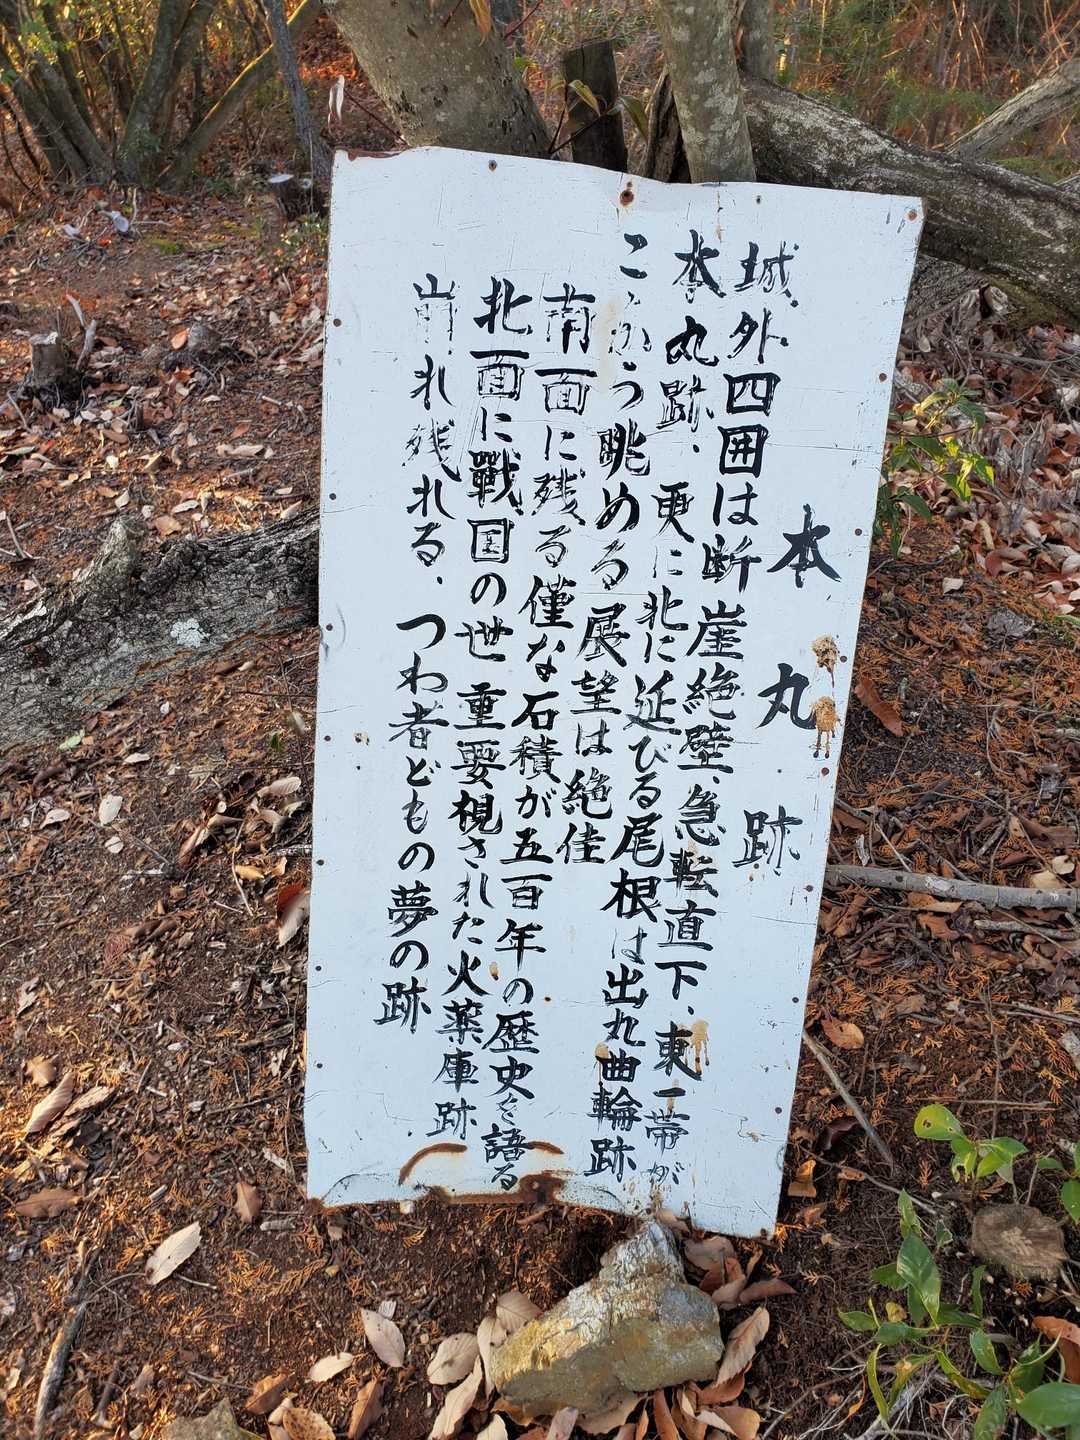 本丸跡
城外四囲は断崖絶壁、急転直下、東一帯が
本丸跡、更に北に延びる尾根は出丸曲輪跡
ここから眺める展望は絶佳
南面に残る僅な石積が五百年の歴史を語る
北面に戰国の世重要視された火薬庫跡
崩れ残れる、つわ者どもの夢の跡